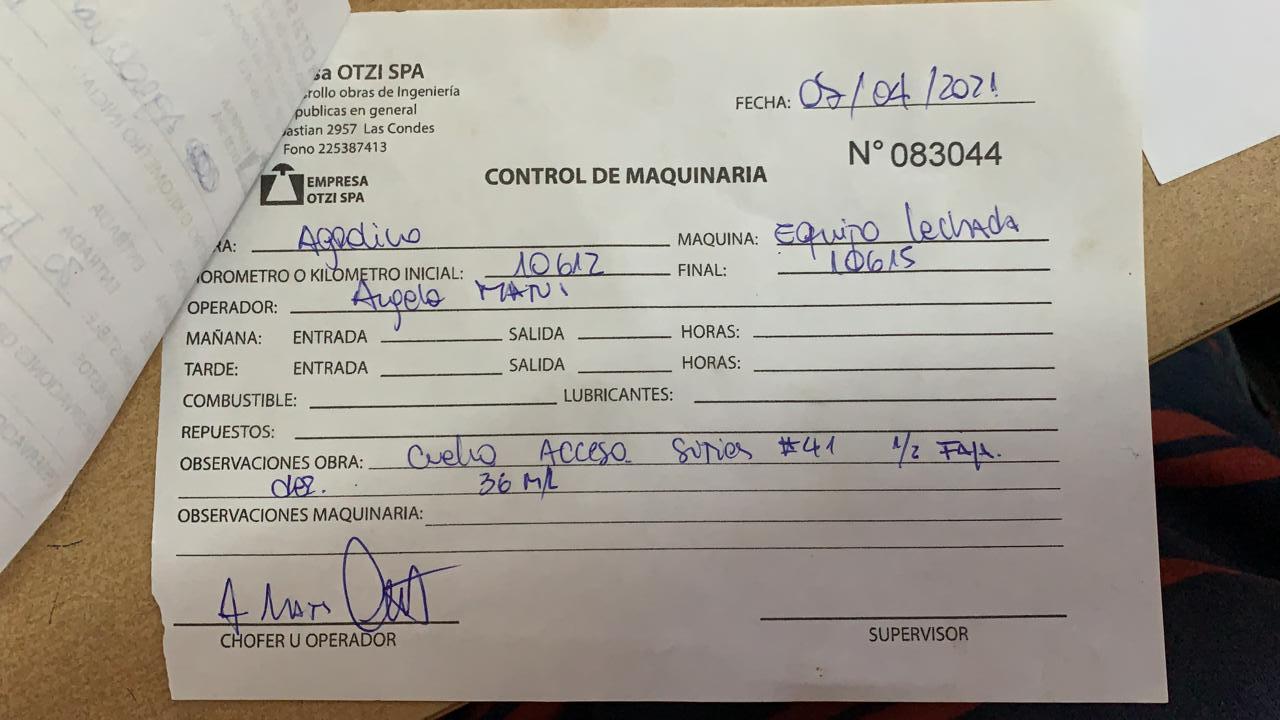 sa OTZI SPA
rollo obras de Ingeniería
publicas en general
astian 2957 Las Condes
Fono 225387413
EMPRESA
OTZI SPA
FECHA: 07/04/2021
N° 083044
CONTROL DE MAQUINARIA
RA: MAQUINA: Equipo lechada
OROMETRO O KILOMETRO INICIAL: 10612 FINAL: 10615
OPERADOR: Angelo MANI
MAÑANA: ENTRADA SALIDA HORAS:
TARDE: ENTRADA SALIDA HORAS:
COMBUSTIBLE: LUBRICANTES:
REPUESTOS:
OBSERVACIONES OBRA: Acceso #41 1/2 FAJA.
36 ML
OBSERVACIONES MAQUINARIA:
A MANI
CHOFER U OPERADOR
SUPERVISOR